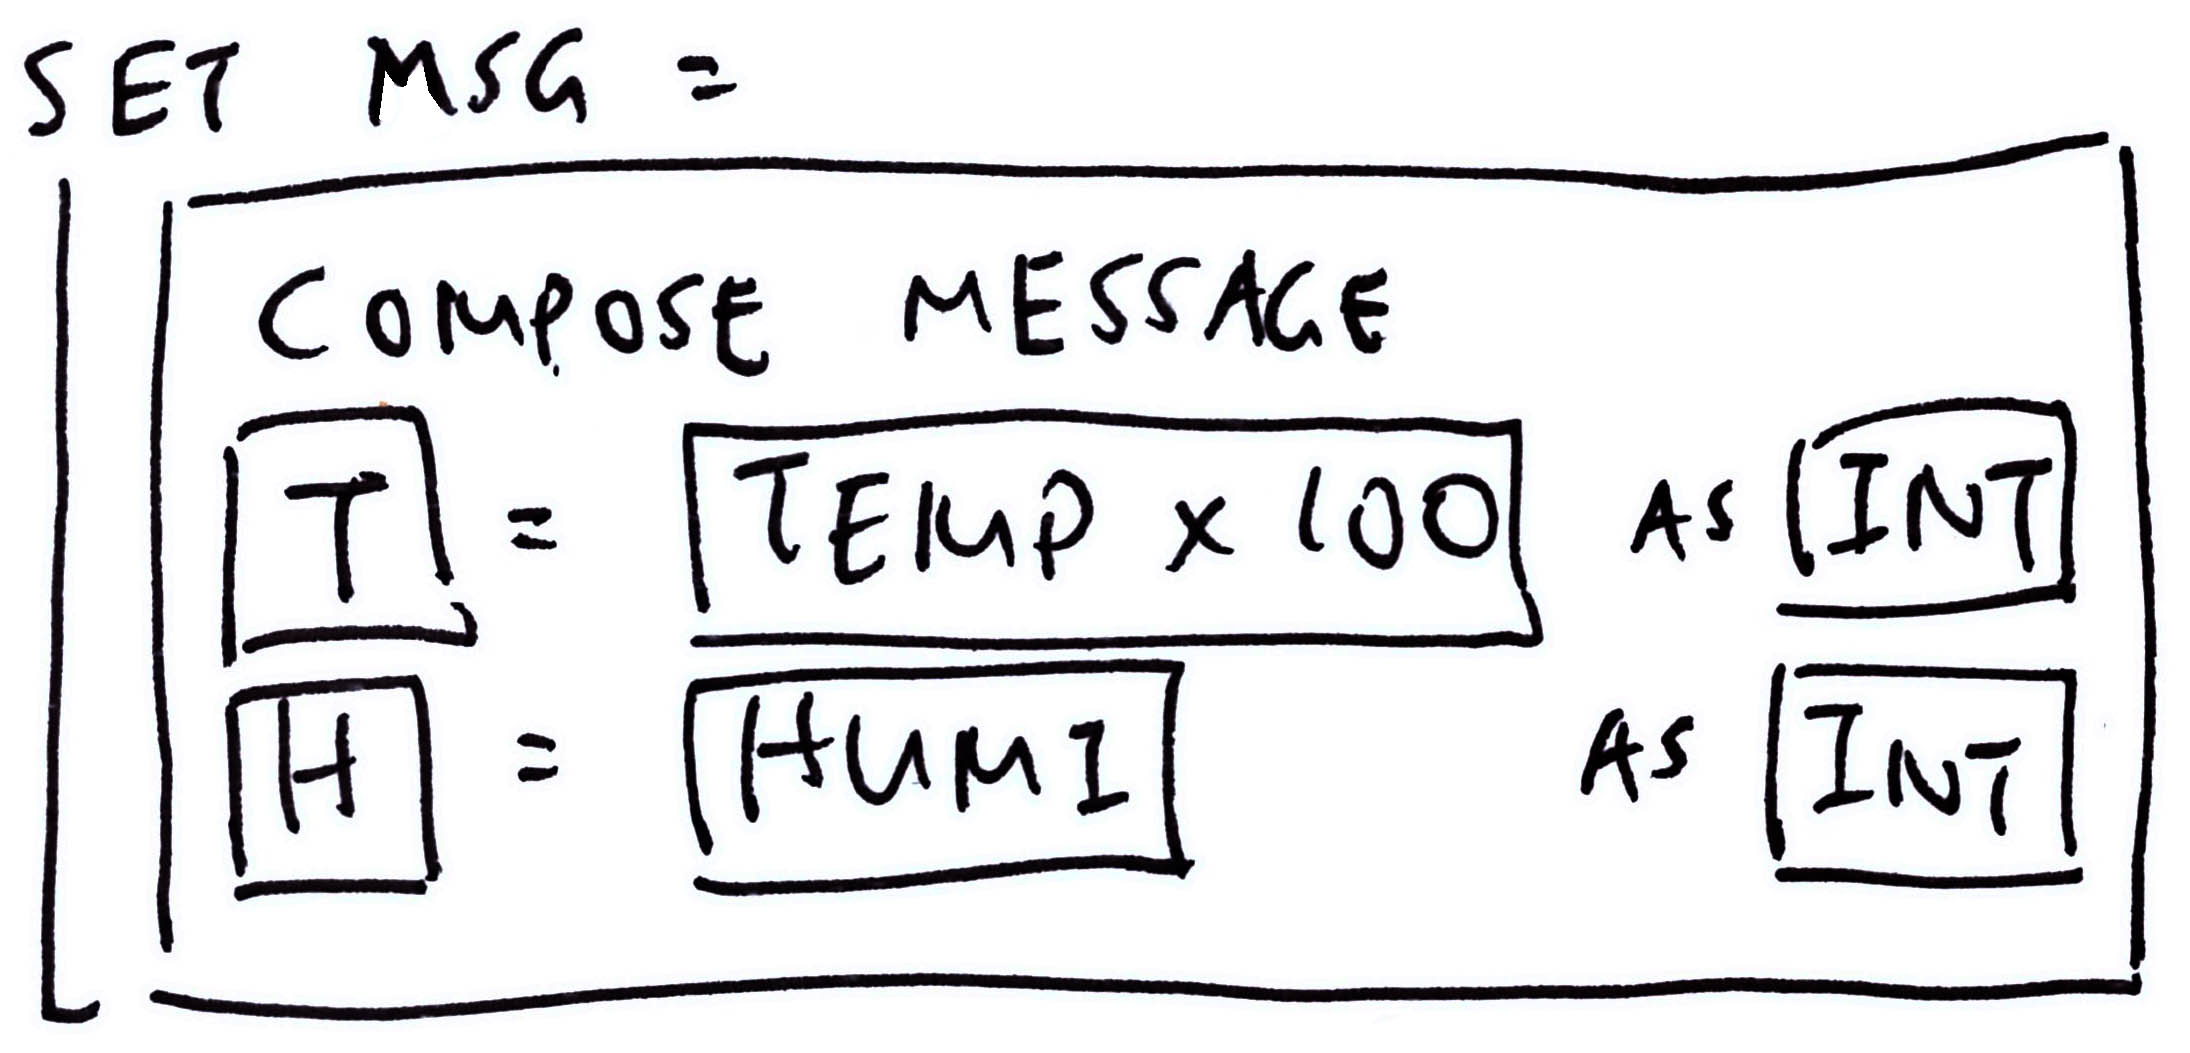 SET MSG =
COMPOSE MESSAGE
T = TEMP x 100 AS INT
H = HUMI AS INT